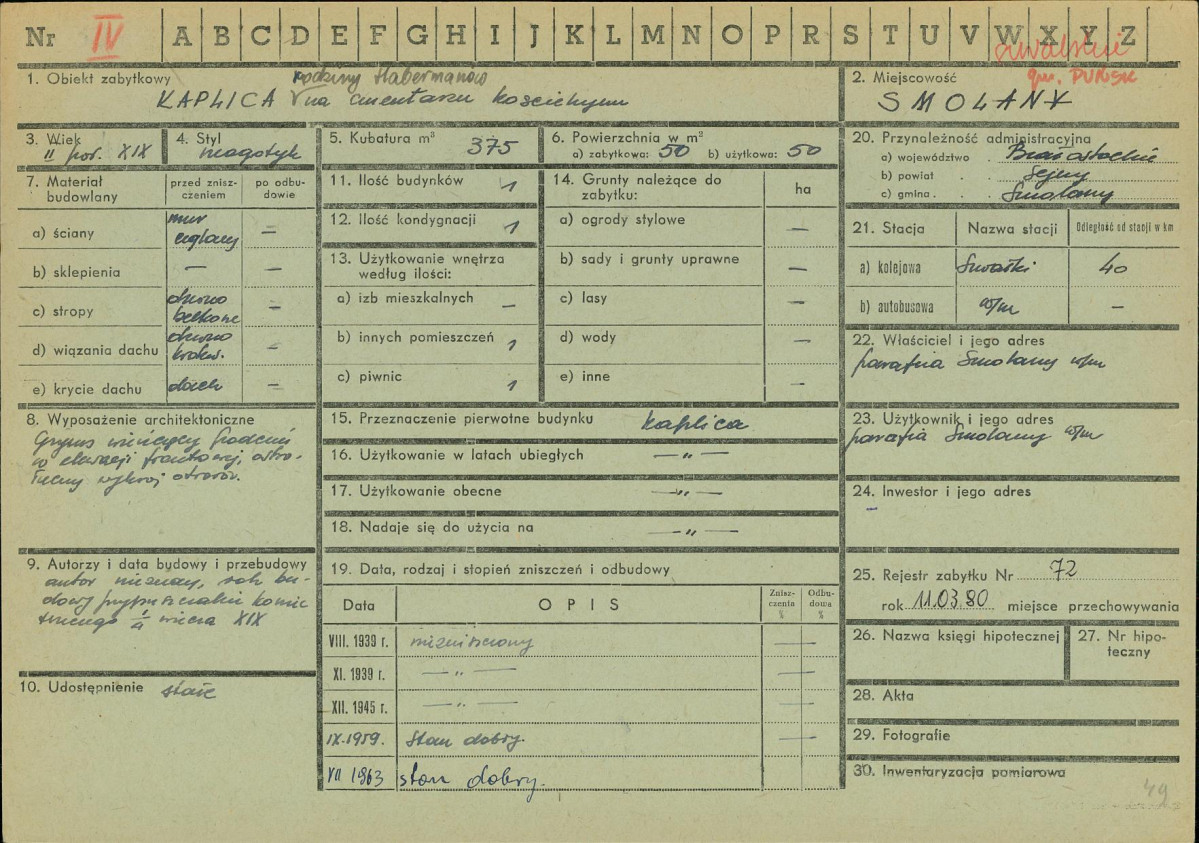 Nr IV A B C D E F G H I J K L M N O P R S T U V W X Y Z
suwalskie
gm. PUŃSK
1. Obiekt zabytkowy
rodziny Habermanów
KAPLICA V na cmentarzu kościelnym
2. Miejscowość
SMOLANY
3. Wiek
II poł. XIX
4. Styl
neogotyk
5. Kubatura m³
375
6. Powierzchnia w m²
a) zabytkowa: 50 b) użytkowa: 50
7. Materiał budowlany
przed zniszczeniem
po odbudowie
a) ściany
mur ceglany —
b) sklepienia — —
c) stropy
drewno belkowe —
d) wiązania dachu
drewno krokw. —
e) krycie dachu
dach. —
8. Wyposażenie architektoniczne
Gzyms wieńczący
w elewacji frontowej, ostro-
łuczny wykrój otworów.
9. Autorzy i data budowy i przebudowy
autor nieznany, rok bu-
dowy przypuszczalnie koniec
wieku XIX
10. Udostępnienie stałe
11. Ilość budynków 1
12. Ilość kondygnacji 1
13. Użytkowanie wnętrza
według ilości:
a) izb mieszkalnych —
b) innych pomieszczeń 1
c) piwnic 1
14. Grunty należące do
zabytku:
ha
a) ogrody stylowe —
b) sady i grunty uprawne —
c) lasy —
d) wody —
e) inne —
15. Przeznaczenie pierwotne budynku kaplica
16. Użytkowanie w latach ubiegłych —"—
17. Użytkowanie obecne —"—
18. Nadaje się do użycia na —"—
19. Data, rodzaj i stopień zniszczeń i odbudowy
Data
OPIS
Zniszczenia %
Odbudowa %
VIII. 1939 r. niezniszczony —
XI. 1939 r. —"— —
XII. 1945 r. —"— —
IX.1959. Stan dobry. —
VII 1963 stan dobry.
20. Przynależność administracyjna
a) województwo . Białostockie
b) powiat . . Sejny
c) gmina . . . Smolany
21. Stacja
Nazwa stacji
Odległość od stacji w km
a) kolejowa Suwałki 40
b) autobusowa w/m —
22. Właściciel i jego adres
parafia Smolany w/m
23. Użytkownik i jego adres
parafia Smolany w/m
24. Inwestor i jego adres
–
25. Rejestr zabytku Nr 72
rok 11.03.80 miejsce przechowywania
26. Nazwa księgi hipotecznej
27. Nr hipoteczny
28. Akta
29. Fotografie
30. Inwentaryzacja pomiarowa
49